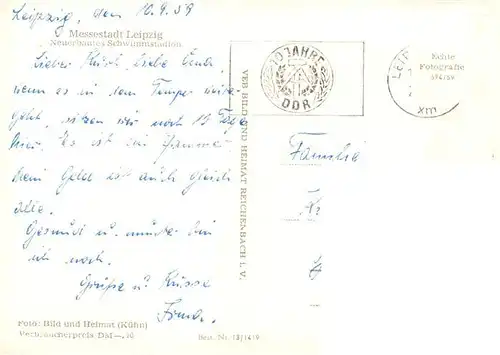 Leipzig, den 10.9.59
Messestadt Leipzig
Neuerbautes Schwimmstadion
wenn es in dem Tempo weiter
geht, sitzen wir noch 10 Tage
hier. Es ist ein Jammer.
Mein Geld ist auch gleich
alle.
Gesund u. munter bin
ich noch.
Grüße u. Küsse
Foto: Bild und Heimat (Kühn)
Verbraucherpreis DM —,10
Best. Nr. 13/1419
VEB BILD UND HEIMAT REICHENBACH I. V.
10 JAHRE
DDR
LEIP
Echte
Fotografie
Familie